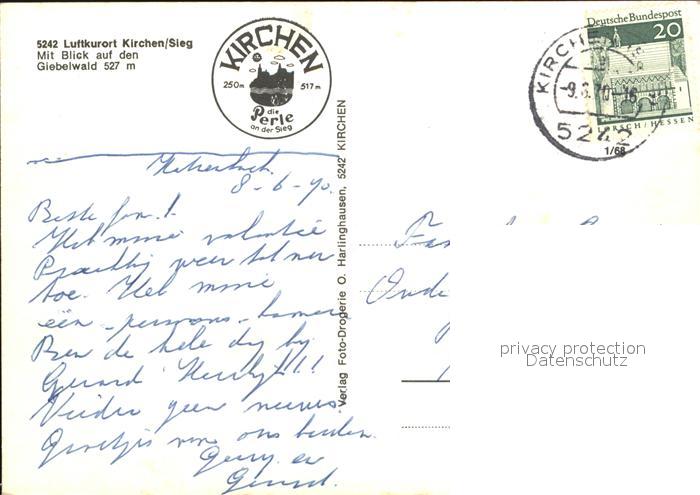 5242 Luftkurort Kirchen/Sieg
Mit Blick auf den
Giebelwald 527 m
KIRCHEN
250m 517m
die
Perle
an der Sieg
Deutsche Bundespost
20
LORSCH/HESSEN
1/68
KIRCHEN
-9.6.70-16
5242
8-6-70.
Beste fam.!
Hele mooie vakantie
Prachtig weer tot nu
toe. Hele mooie
één-persoons-kamer
Ben de hele dag bij
Gerard Heerlijk!!!
Verder geen nieuws.
Groetjes van ons beiden.
Gerry en
Gerard.
Verlag Foto-Drogerie O. Harlinghausen, 5242 KIRCHEN
Fa
Oude
privacy protection
Datenschutz